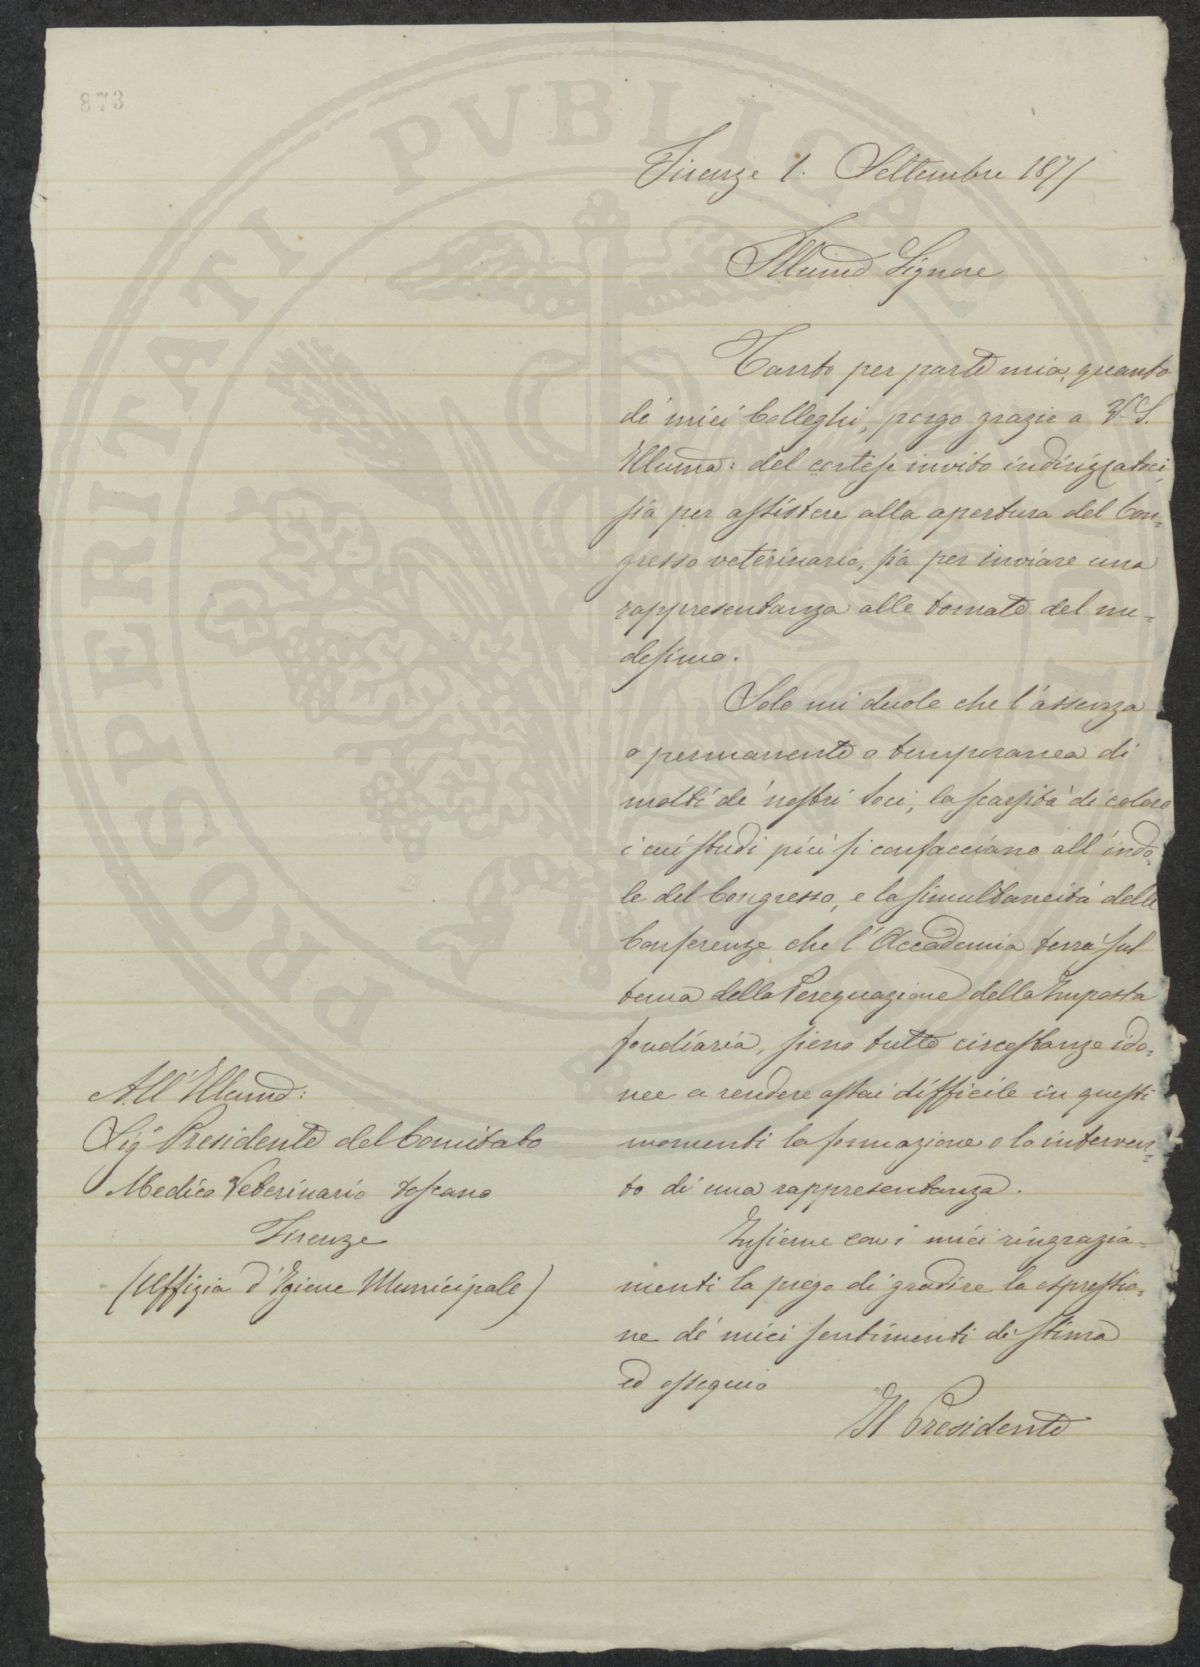 873
PROSPERITATI PVBLICAE
Firenze 1. Settembre 1871
Illumo Signore
Tanto per parte mia, quanto
de' miei Colleghi, porgo grazie a V. S.
Illuma: del cortese invito indirizzatoci,
sia per assistere alla apertura del Con=
gresso veterinario, sia per inviare una
rappresentanza alle tornate del me=
desimo.
Solo mi duole che l'assenza
o permanente o temporanea di
molti de' nostri Soci, la scarsità di coloro
i cui studi più si confacciano all'indo=
le del Congresso, e la simultaneità delle
Conferenze che l'Accademia terrà sul
tema della Perequazione della Imposta
fondiaria, sieno tutte circostanze ido=
nee a rendere assai difficile in questi
momenti la formazione o lo interven=
to di una rappresentanza.
Insieme con i miei ringrazia=
menti la prego di gradire la espressio=
ne de' miei sentimenti di stima
ed ossequio
Il Presidente
All'Illumo:
Sigr Presidente del Comitato
Medico Veterinario toscano
Firenze
(Uffizio d'Igiene Municipale)